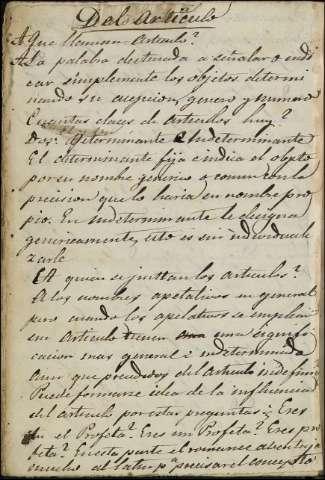 Del Articulo
Que llaman Articulo?
La palabra destinada a señalar o indi
car simplemente los objetos determi
nando su acepcion, genero y numero
Cuantas clases de Articulos hay?
Dos: Determinante e Indeterminante
El determinante fija e indica el objeto
por su nombre generico o comun con la
precision que lo haria en nombre pro
pio. En Indeterminante le designa
genericamente, esto es sin individuali
zarle
A quien se juntan los articulos?
A los nombres apelativos en general
pero cuando los apelativos se emplean
sin Articulo tienen una signifi
cacion mas general e indeterminada
aun que precedidos del Articulo indefinido
Puede formarse idea de la influencia
del articulo por estas preguntas: Eres
tu el Profeta? Eres un Profeta? Eres pro
feta? En esta parte el romance aventaja
mucho al latin pa precisar el concepto